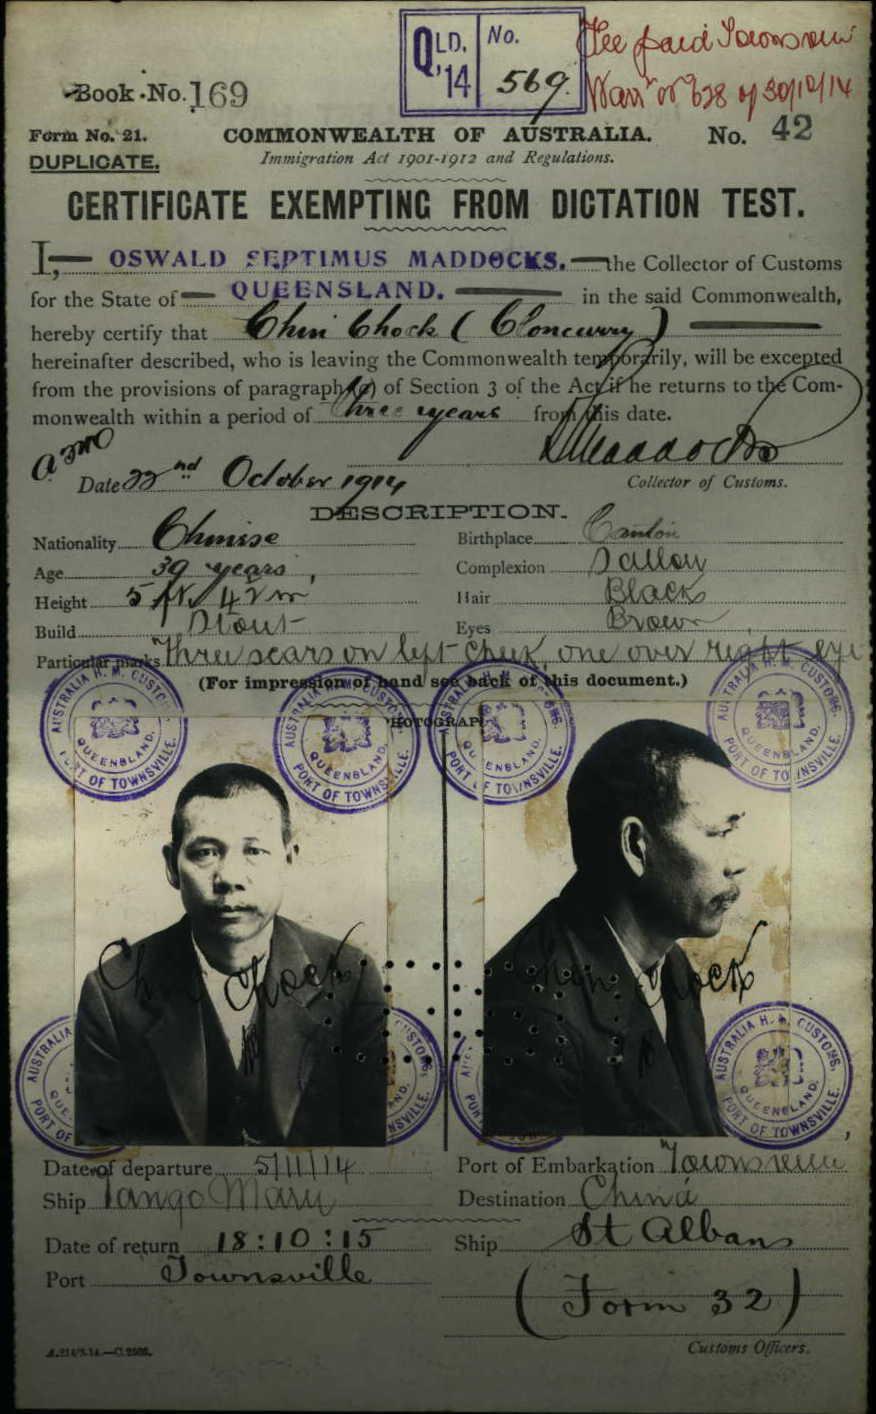 QLD. '14 No. 569.
Fee paid Townsville
Book No. 169
Form No. 21.
DUPLICATE.
COMMONWEALTH OF AUSTRALIA.
No. 42
Immigration Act 1901-1912 and Regulations.
CERTIFICATE EXEMPTING FROM DICTATION TEST.
I, OSWALD SEPTIMUS MADDOCKS. the Collector of Customs
for the State of QUEENSLAND. in the said Commonwealth,
hereby certify that Chin Chock (Cloncurry)
hereinafter described, who is leaving the Commonwealth temporarily, will be excepted
from the provisions of paragraph (a) of Section 3 of the Act if he returns to the Com-
monwealth within a period of three years from this date.
Date 22nd October 1914
Collector of Customs.
DESCRIPTION.
Nationality Chinese Birthplace Canton
Age 39 years Complexion Sallow
Height 5 ft. Hair Black
Build Stout Eyes Brown
Particular marks Three scars on left cheek, one over right eye
(For impression of hand see back of this document.)
PHOTOGRAP
AUSTRALIA H. M. CUSTOMS. QUEENSLAND. PORT OF TOWNSVILLE.
AUSTRALIA H. M. CUSTOMS. QUEENSLAND. PORT OF TOWNSVILLE.
AUSTRALIA H. M. CUSTOMS. QUEENSLAND. PORT OF TOWNSVILLE.
AUSTRALIA H. M. CUSTOMS. QUEENSLAND. PORT OF TOWNSVILLE.
Chin Chock
Chin Chock
AUSTRALIA PORT OF
AUSTRALIA H. M. CUSTOMS. QUEENSLAND. PORT OF TOWNSVILLE.
Date of departure 5/11/14 Port of Embarkation Townsville
Ship Tango Maru Destination China
Date of return 18:10:15 Ship St Albans
Port Townsville
(Form 32)
Customs Officers.